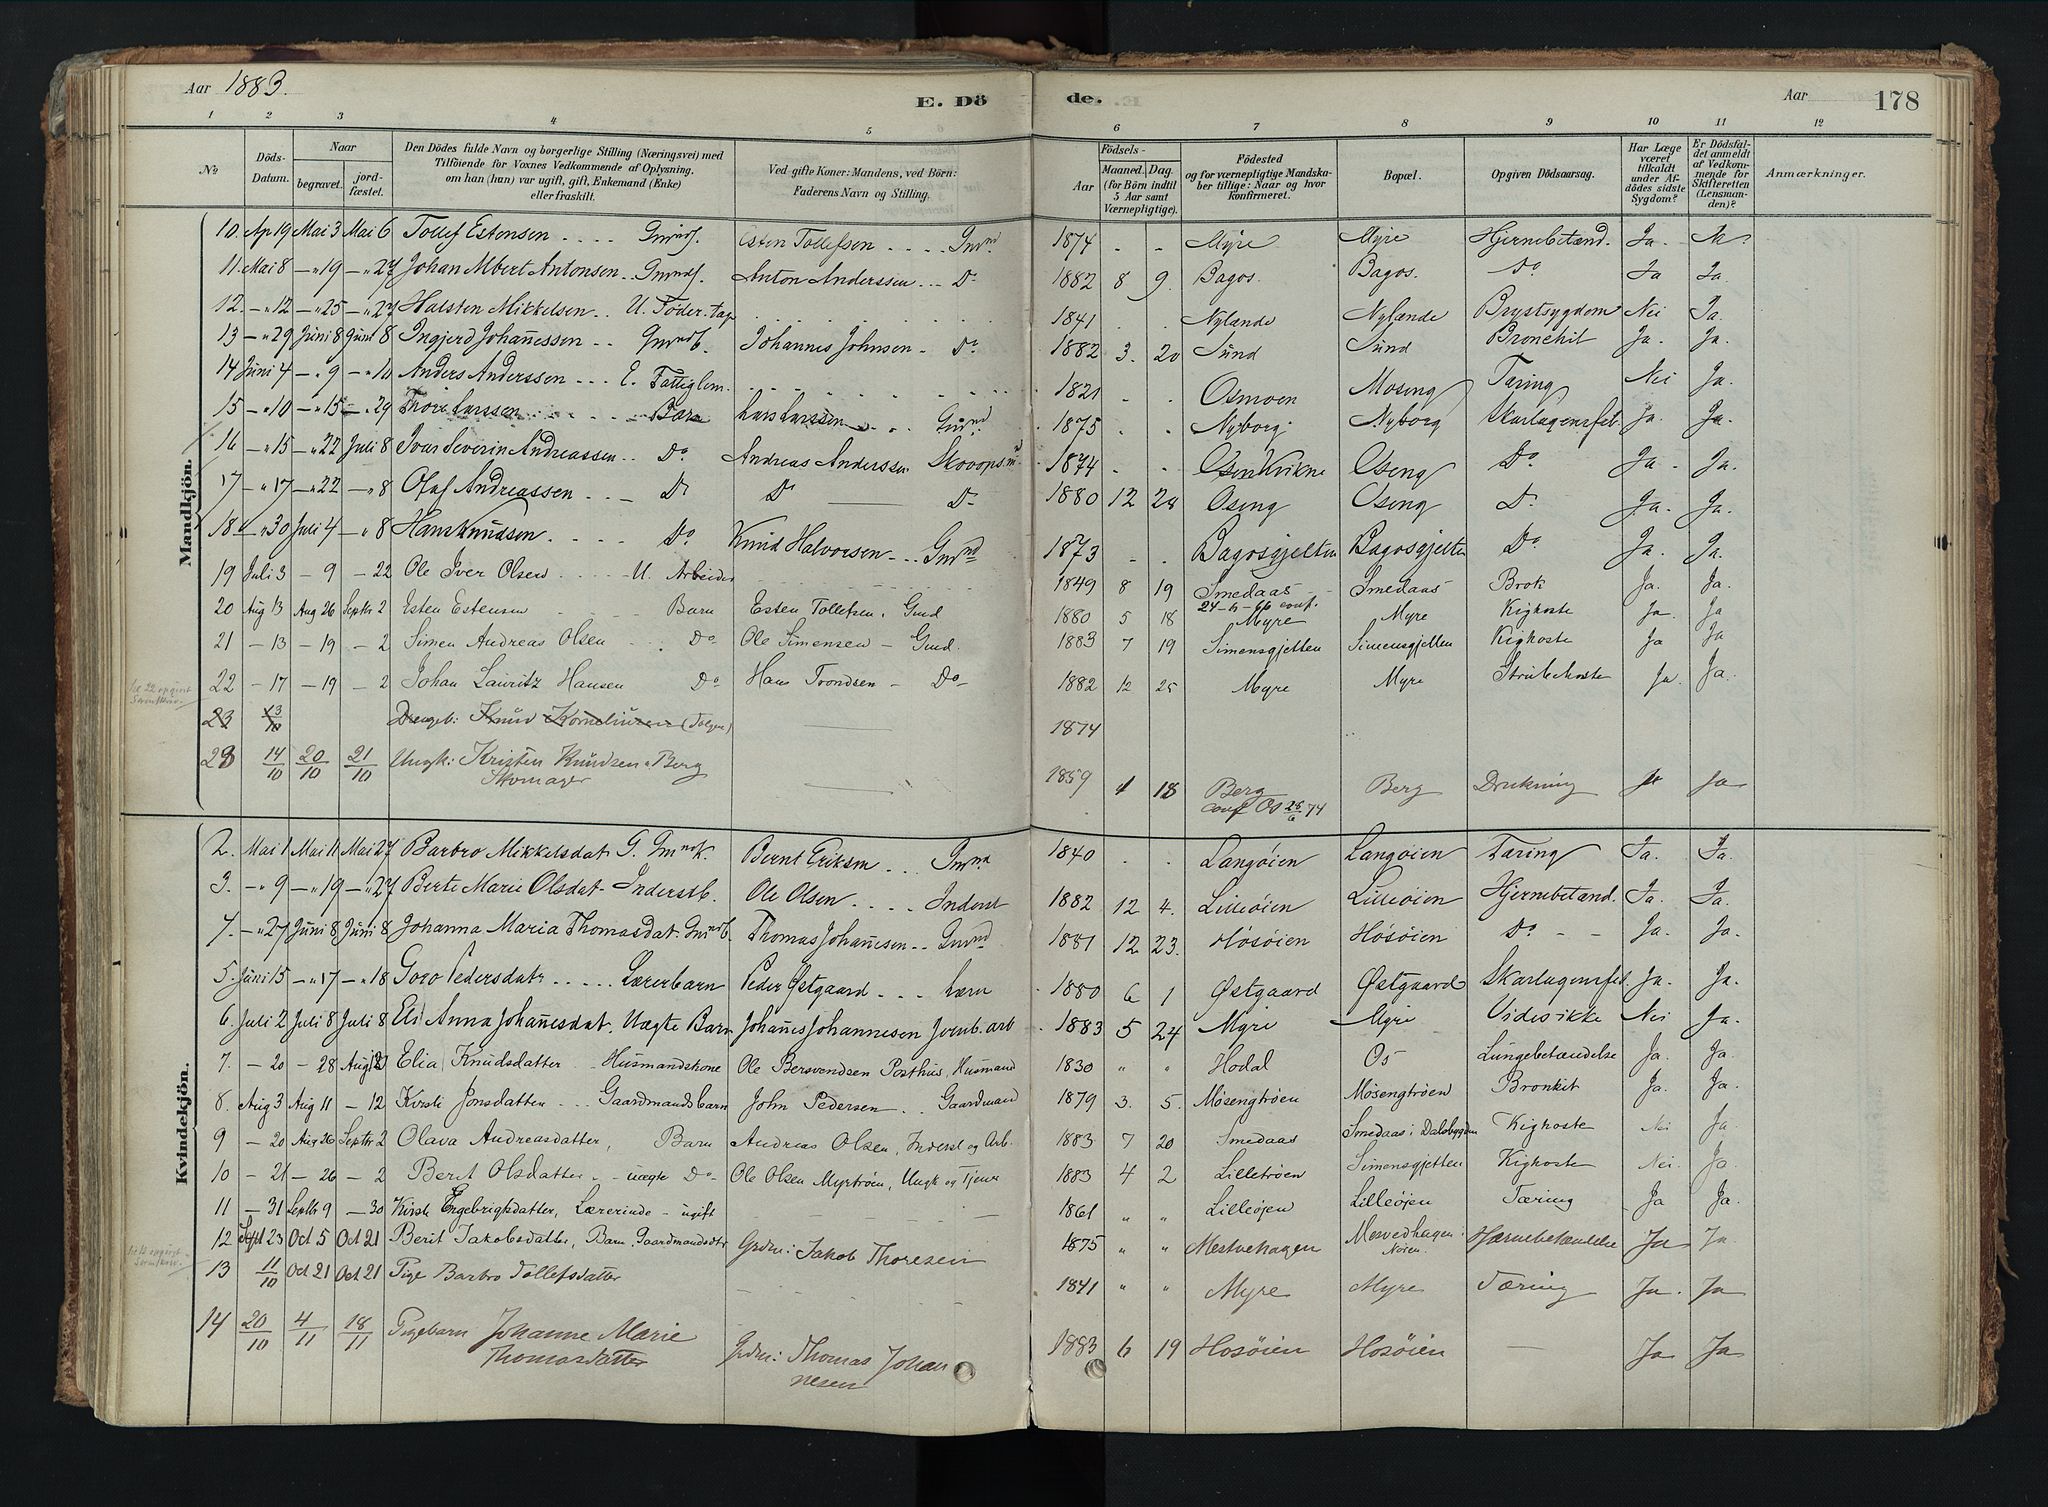 Aar 1883.
E. Dö
de.
Aar
178
1 2 3 4 5 6 7 8 9 10 11 12
No
Döds-Datum.
Naar
begravet.
jord-fæstet.
Den Dödes fulde Navn og borgerlige Stilling (Næringsvei) med
Tilföiende for Voxnes Vedkommende af Oplysning,
om han (hun) var ugift, gift, Enkemand (Enke)
eller fraskilt.
Ved gifte Koner: Mandens, ved Börn:
Faderens Navn og Stilling.
Födsels-
Aar
Maaned. Dag.
(for Börn indtil
5 Aar samt
Værnepligtige).
Födested
og for værnepligtige Mandska-
ber tillige: Naar og hvor
konfirmeret.
Bopæl.
Opgiven Dödsaarsag.
Har Læge
været
tilkaldt
under Af-
dödes sidste
Sygdom?
Er Dödsfal-
det anmeldt
af Vedkom-
mende for
Skifteretten
(Lensman-
den)?
Anmærkninger.
Mandkjön.
10. Ap 19 Mai 3 Mai 6 Tollef Estensen Esten Tollefsen 1874 - - Myre Myre Hjernebetænd. Ja
11. Mai 8 - " 19 - " 27 Johan Albert Antonsen Anton Anderssen Do 1882 8 9. Bagos. Bagos. Do Ja Ja.
12. - " 12 - " 25 - " 27 Halsten Mikkelsen U. 1841 Nylande Nylænde Brystsygdom Nei Ja.
13 - " 29 Juni 8 Juni 8 Ingjerd Johañessen Johannes Johnsen - Do 1882 3. 20 Sund Sund Bronchit Ja. Ja.
14 Juni 4 - " 9 - " 10 Anders Anderssen E. Fattiglem. 1821 Osmoen Moseng Tæring Nei Ja.
15 - " 10 - " 15 - " 29 Thore Larssen Barn Lars Larssen 1875 Nyborg Nyborg Skarlagensfeb. Ja. Ja.
16 - " 15 - " 22 Juli 8 Ivar Severin Andreassen Do Andreas Anderssen 1874 Osen Kvikne Oseng Do Ja. Ja.
17 - " 17 - " 22 - " 8 Olaf Andreassen Do Do Do 1880 12 28 Oseng Oseng Do Ja. Ja.
18 - " 30 Juli 4 - " 8 Hans Knudsen Do Knud Halvorsen 1873 Bagosgjelten Bagosgjelten Do Ja. Ja.
19 Juli 3 - 9 - 22 Ole Iver Olsen U. Arbeider 1849 8 19 Smedaas Smedaas Brok Ja. Ja.
24-6-66 conf.
20 Aug 13 Aug 26 Septr 2 Esten Estensen Barn Esten Tollefsen. Gmd 1880 5 18 Myre Myre Kighoste Ja Ja
21 - 13 - 19 - 2 Simen Andreas Olsen Do Ole Simensen - Gmd. 1883 7 19 Simensgjelten Simensgjelten Kighoste Ja Ja
22 - 17 - 19 - 2 Johan Lauritz Hansen Do Hans Trondsen - Do 1882 12 25 Myre Myre Strubehoste Ja. Ja.
23 13/10 Drengeb: Knud Korneliusen (Tolgen) 1874
23 14/10 20/10 21/10 Ungk: Kristen Knudsen Berg 1859 4 18 Berg Berg Drukning Ja Ja
Skomager conf Os 25/6 74
Kvindekjön.
2. Mai 1 Mai 11 Mai 27 Barbro Mikkelsdat. G. Bernt Eriksen 1840 Langøien Langøien Tæring Ja. Ja.
3. - " 9 - " 19 - " 27 Berte Marie Olsdat. Inderstb. Ole Olsen Inderst 1882 12 4. Lilleøien Lilleøien Hjernebetænd. Ja. Ja.
- " 27 Juni 8 Juni 8 Johanna Maria Thomasdat. Thomas Johañesen 1881 12 23. Høsøien Høsøien Do Ja. Ja.
5. Juni 15 - " 17 - " 18 Goro Pedersdatr Lærerbarn Peder Østgaard Lærer 1880 6 1 Østgaard Østgaard Skarlagensfeb. Ja. Ja.
6. Juli 2 Juli 8 Juli 8 Eli Anna Johañesdat. Uægte Barn Johañes Johannesen Jernb. arb 1883 5 24 Myre Myre Vides ikke Nei Ja.
7. - 20 - 28 Aug 12 Elia Knudsdatter Husmandskone Ole Bersvendsen Posthus, Husmand 1830 " " Hodal Os Lungebetændelse Ja. Ja.
8. Aug 3 Aug 11 - 12 Kirsti Jonsdatter Gaardmandsbarn John Pedersen Gaardmand 1879 3. 5. Møsengtrøen Møsengtrøen Bronkit Ja. Ja.
9 - 20 Aug 26 Septr 2 Olava Andreasdatter, Barn Andreas Olsen, Inderst og Arb. 1883 7 20 Smedaas Smedaas i Dalsbygden Kighoste Nei Ja.
10 - 21 - 26 - 2 Berit Olsdatter - uægte Do Ole Olsen Myrtrøen, Ungk og Tjener 1883 4 2 Lilletrøen Simensgjelten Kighoste Nei. Ja.
11 - 31 Septbr 9 - 30 Kirsti Engebrigtsdatter, Lærerinde - ugift 1861 " " Lilleøjen Lilleøjen Tæring Ja Ja.
12 Sept 23 Oct 5 Oct 21 Berit Jakobsdatter, Barn. Gaardmandsdtr Grdm: Jakob Thoresen 1875 " " Mestvehagen Hjærnebetændelse Ja Ja.
13 11/10 Oct 21 Oct 21 Pige Barbro Tollefsdatter 1841 " " Myre Myre Tæring Ja. Ja
14 20/10 4/11 18/11 Pigebarn Johanne Marie Grdm: Thomas Johan 1883 6 19 Hosøien Hosøien - Ja Ja
Thomasdatter nesen